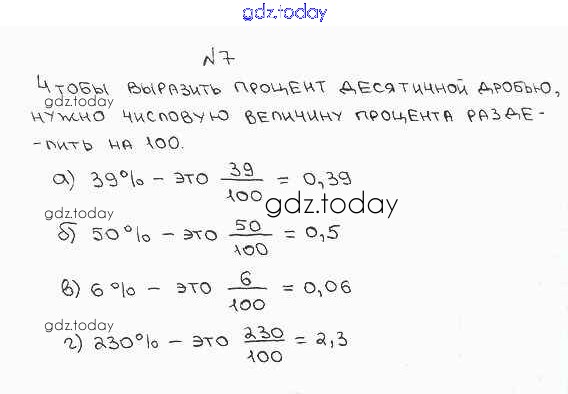 gdz.today
№7
Чтобы выразить процент десятичной дробью,
gdz.today
нужно числовую величину процента разде-
-лить на 100.
а) 39% - это 39/100 = 0,39
gdz.today
gdz.today
б) 50% - это 50/100 = 0,5
в) 6% - это 6/100 = 0,06
gdz.today
г) 230% - это 230/100 = 2,3